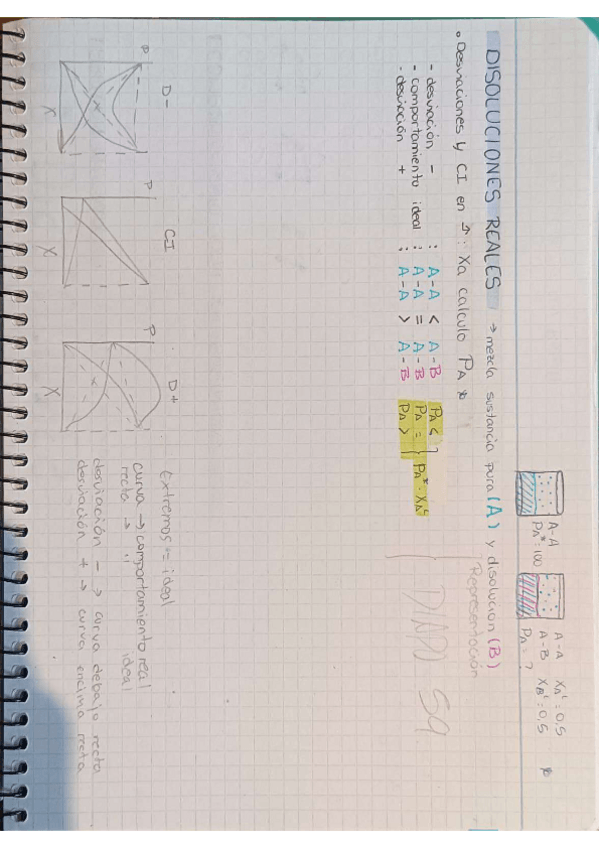 DISOLUCIONES REALES → mezcla sustancia pura (A) y disolución (B)
A-A
PA* = 100
A-A XAᴸ = 0,5
A-B XBᴸ = 0,5 *
PA = ?
• Desviaciones y CI en : Xa calculo PA *
- desviación - : A-A < A-B PA <
- comportamiento ideal : A-A = A-B PA = } PA* · XAᴸ
- desviación + : A-A > A-B PA >
Representación
DIAPO 59
D-
P
X
CI
P
X
D+
P
X
Extremos = ideal
curva → comportamiento real
recta → '' ideal
desviación - → curva debajo recta
desviación + → curva encima recta